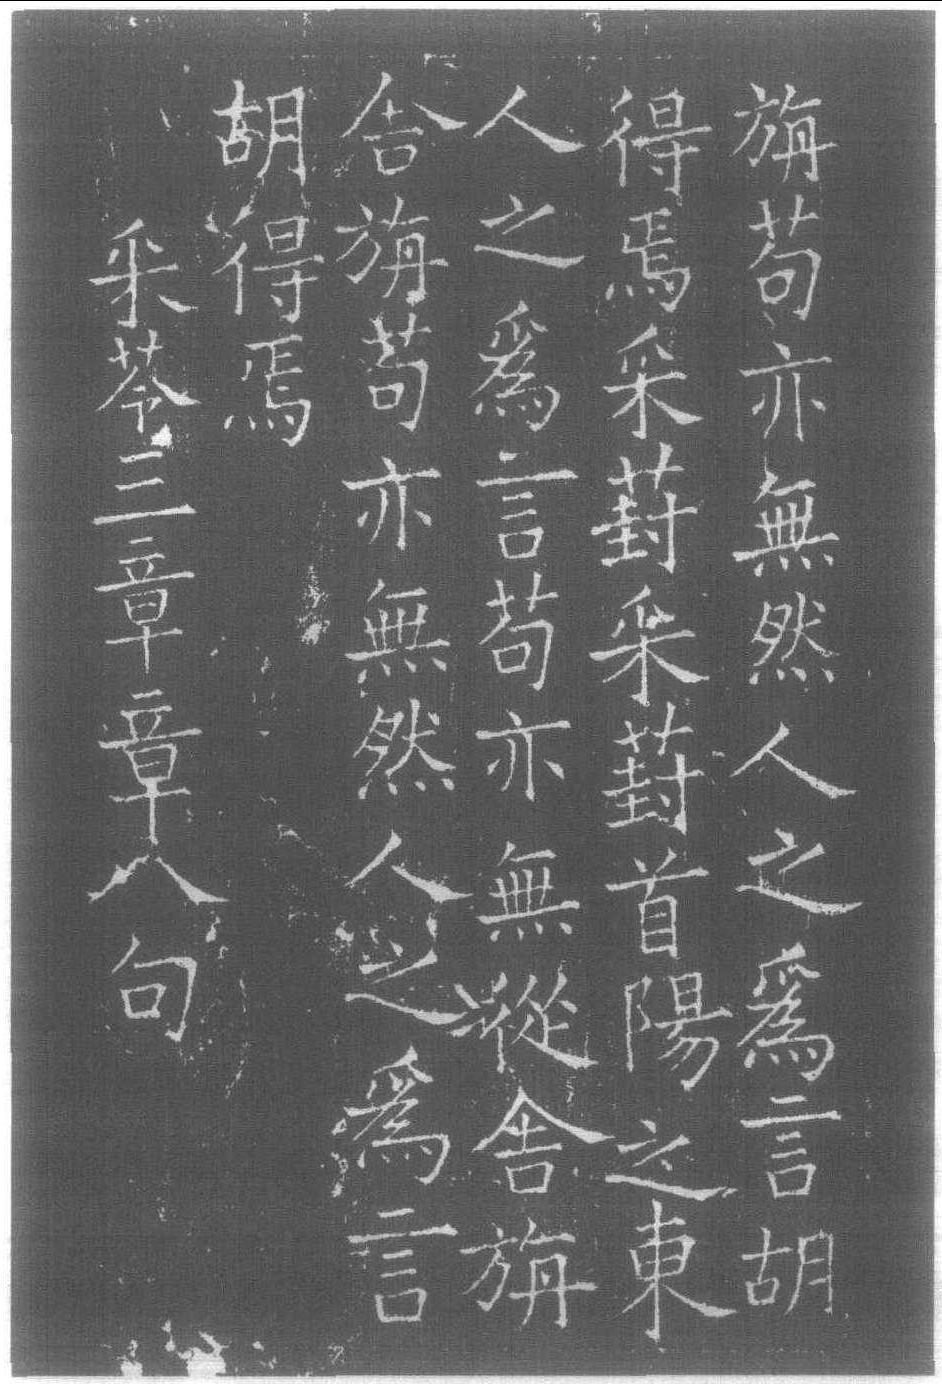 旃苟亦無然人之爲言胡
得焉采葑采葑首陽之東
人之爲言苟亦無從舍旃
舍旃苟亦無然人之爲言
胡得焉
采苓三章章八句